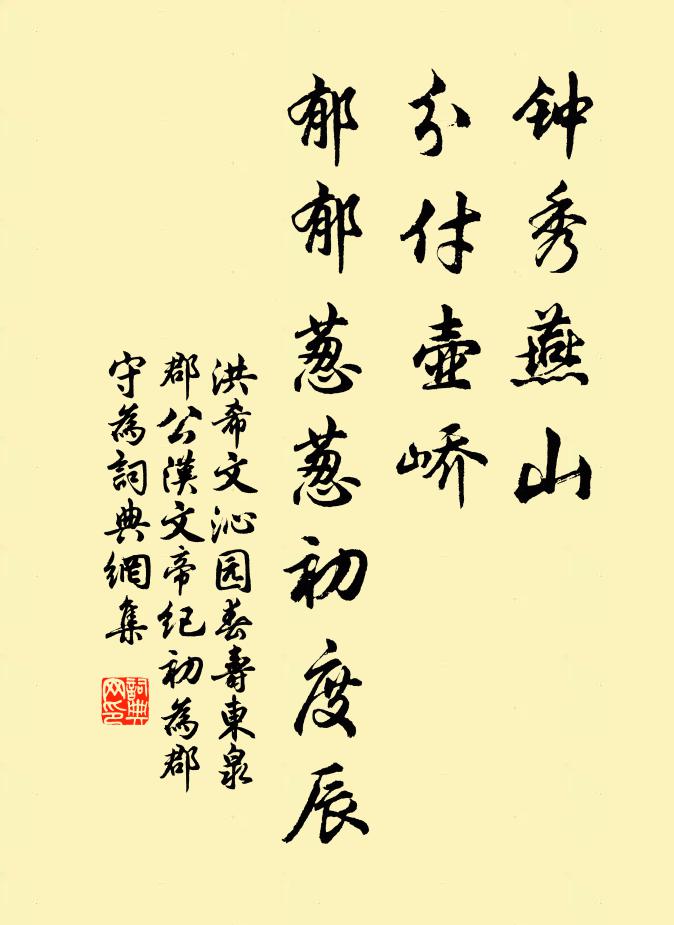 钟秀燕山
分付壶峤
郁郁葱葱初度辰
洪希文沁园春寿東泉
郡公漢文帝纪初為郡
守為詞典網集
詞典
网印